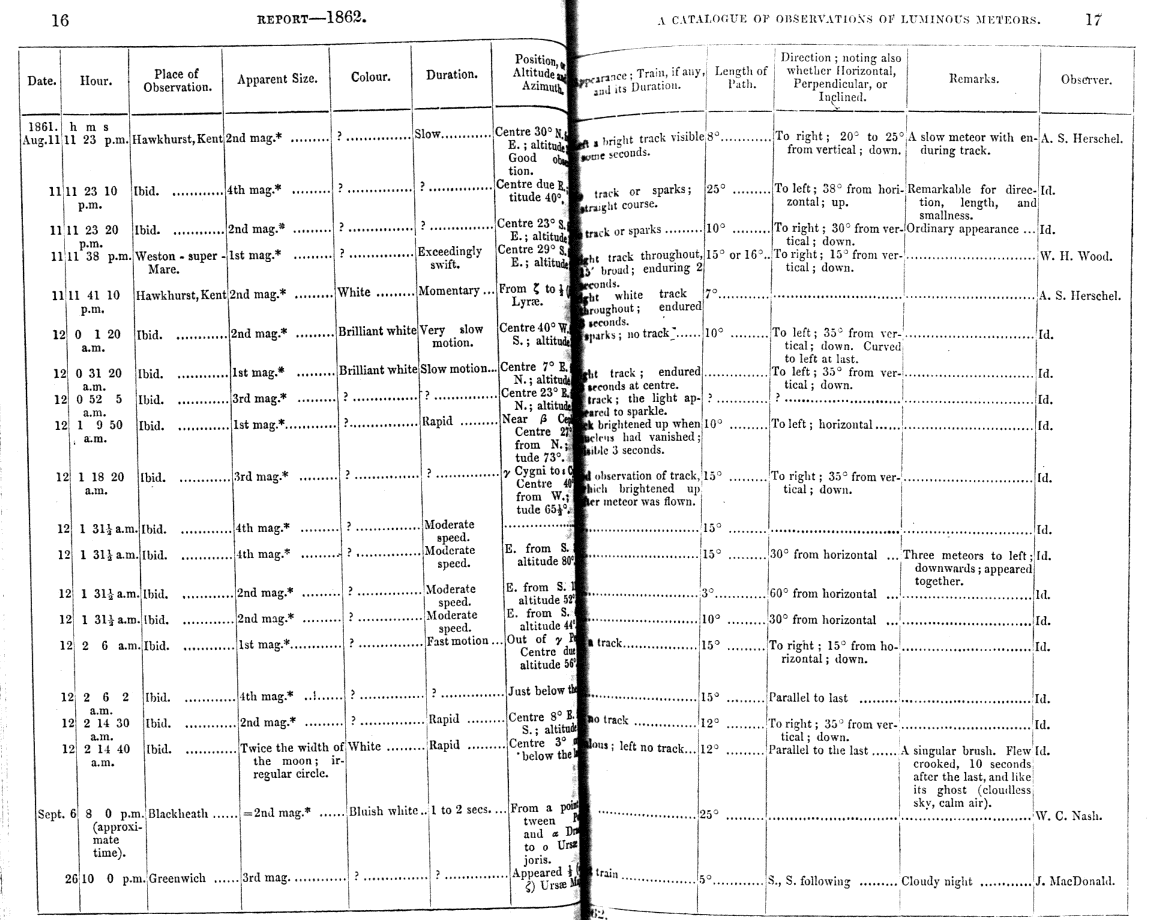 16 REPORT—1862.
Date. Hour. Place of Observation. Apparent Size. Colour. Duration. Position, Altitude Azimuth.
1861. h m s
Aug. 11 11 23 p.m. Hawkhurst, Kent 2nd mag.* ? Slow Centre 30° N.
E. ; altitude
Good
tion.
11 11 23 10 Ibid. 4th mag.* ? ? Centre due E.;
p.m. titude 40°.
11 11 23 20 Ibid. 2nd mag.* ? ? Centre 23° S.
p.m. E. ; altitude
11 11 38 p.m. Weston-super- 1st mag.* ? Exceedingly Centre 29° S.
Mare. swift. E. ; altitude
11 11 41 10 Hawkhurst, Kent 2nd mag.* White Momentary From ζ to
p.m. Lyræ.
12 0 1 20 Ibid. 2nd mag.* Brilliant white Very slow Centre 40° W.
a.m. motion. S. ; altitude
12 0 31 20 Ibid. 1st mag.* Brilliant white Slow motion Centre 7° E.
a.m. N. ; altitude
12 0 52 5 Ibid. 3rd mag.* ? ? Centre 23° E.
a.m. N. ; altitude
12 1 9 50 Ibid. 1st mag.* ? Rapid Near β
a.m. Centre 27°
from N. ;
tude 73°.
12 1 18 20 Ibid. 3rd mag.* ? ? γ Cygni to
a.m. Centre 40°
from W. ;
tude 65½°.
12 1 31½ a.m. Ibid. 4th mag.* ? Moderate
speed.
12 1 31½ a.m. Ibid. 4th mag.* ? Moderate E. from S.
speed. altitude 80°
12 1 31½ a.m. Ibid. 2nd mag.* ? Moderate E. from S.
speed. altitude 52°
12 1 31½ a.m. Ibid. 2nd mag.* ? Moderate E. from S.
speed. altitude 44°
12 2 6 a.m. Ibid. 1st mag.* ? Fast motion Out of γ
Centre due
altitude 56°
12 2 6 2 Ibid. 4th mag.* ? ? Just below the
a.m.
12 2 14 30 Ibid. 2nd mag.* ? Rapid Centre 8° E.
a.m. S. ; altitude
12 2 14 40 Ibid. Twice the width of White Rapid Centre 3°
a.m. the moon ; ir- below the
regular circle.
Sept. 6 8 0 p.m. Blackheath =2nd mag.* Bluish white 1 to 2 secs. From a point
(approxi- tween
mate and α
time). to ο Ursæ
joris.
26 10 0 p.m. Greenwich 3rd mag. ? ? Appeared ½
ζ) Ursæ
A CATALOGUE OF OBSERVATIONS OF LUMINOUS METEORS. 17
Appearance ; Train, if any, and its Duration. Length of Path. Direction ; noting also whether Horizontal, Perpendicular, or Inclined. Remarks. Observer.
a bright track visible 8° To right ; 20° to 25° A slow meteor with en- A. S. Herschel.
some seconds. from vertical ; down. during track.
track or sparks ; 25° To left ; 38° from hori- Remarkable for direc- Id.
straight course. zontal ; up. tion, length, and
smallness.
track or sparks 10° To right ; 30° from ver- Ordinary appearance Id.
tical ; down.
track throughout, 15° or 16° To right ; 15° from ver- W. H. Wood.
15′ broad ; enduring 2 tical ; down.
seconds.
white track 7° A. S. Herschel.
throughout ; endured
seconds.
sparks ; no track 10° To left ; 35° from ver- Id.
tical ; down. Curved
to left at last.
track ; endured To left ; 35° from ver- Id.
seconds at centre. tical ; down.
track ; the light ap- ? ? Id.
peared to sparkle.
brightened up when 10° To left ; horizontal Id.
nucleus had vanished ;
visible 3 seconds.
observation of track, 15° To right ; 35° from ver- Id.
which brightened up tical ; down.
after meteor was flown.
15° Id.
15° 30° from horizontal Three meteors to left ; Id.
downwards ; appeared
together.
3° 60° from horizontal Id.
10° 30° from horizontal Id.
track 15° To right ; 15° from ho- Id.
rizontal ; down.
15° Parallel to last Id.
no track 12° To right ; 35° from ver- Id.
tical ; down.
left no track 12° Parallel to the last A singular brush. Flew Id.
crooked, 10 seconds
after the last, and like
its ghost (cloudless
sky, calm air).
25° W. C. Nash.
train 5° S., S. following Cloudy night J. MacDonald.
62.